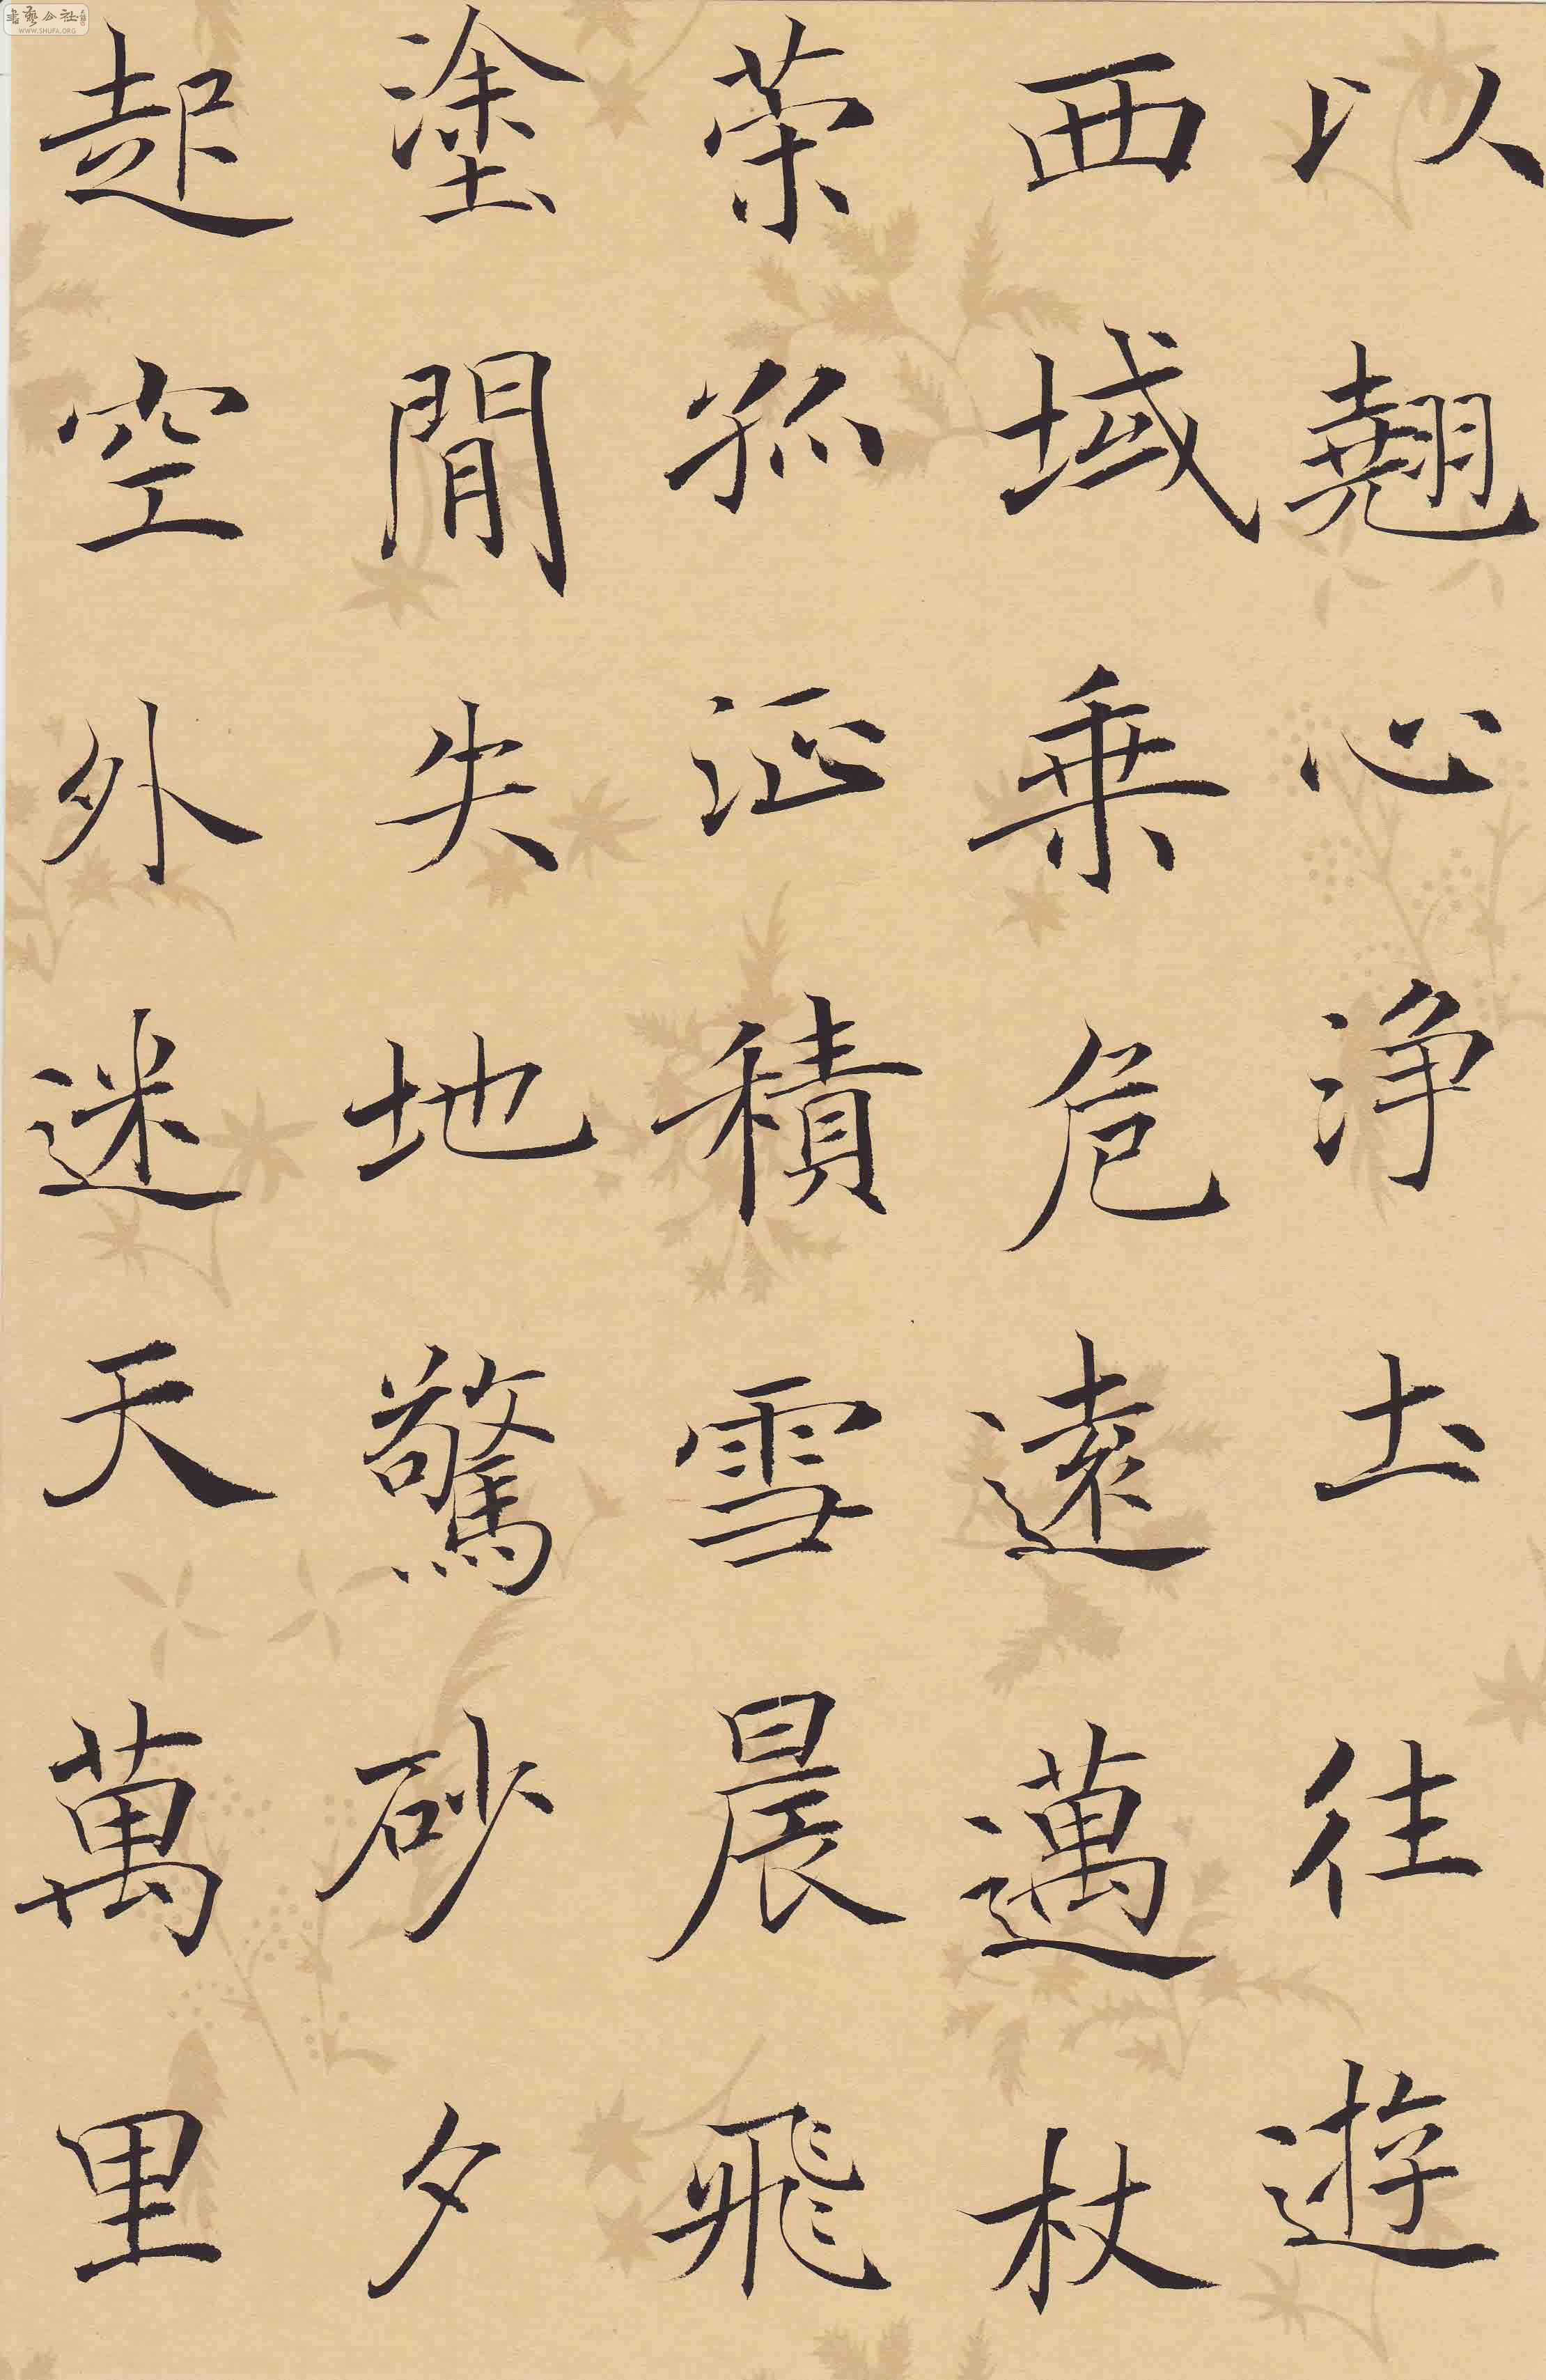 以翹心淨土往遊
西域乗危遠邁杖
茦孤征積雪晨飛
塗閒失地驚砂夕
起空外迷天萬里
WWW.SHUFA.ORG